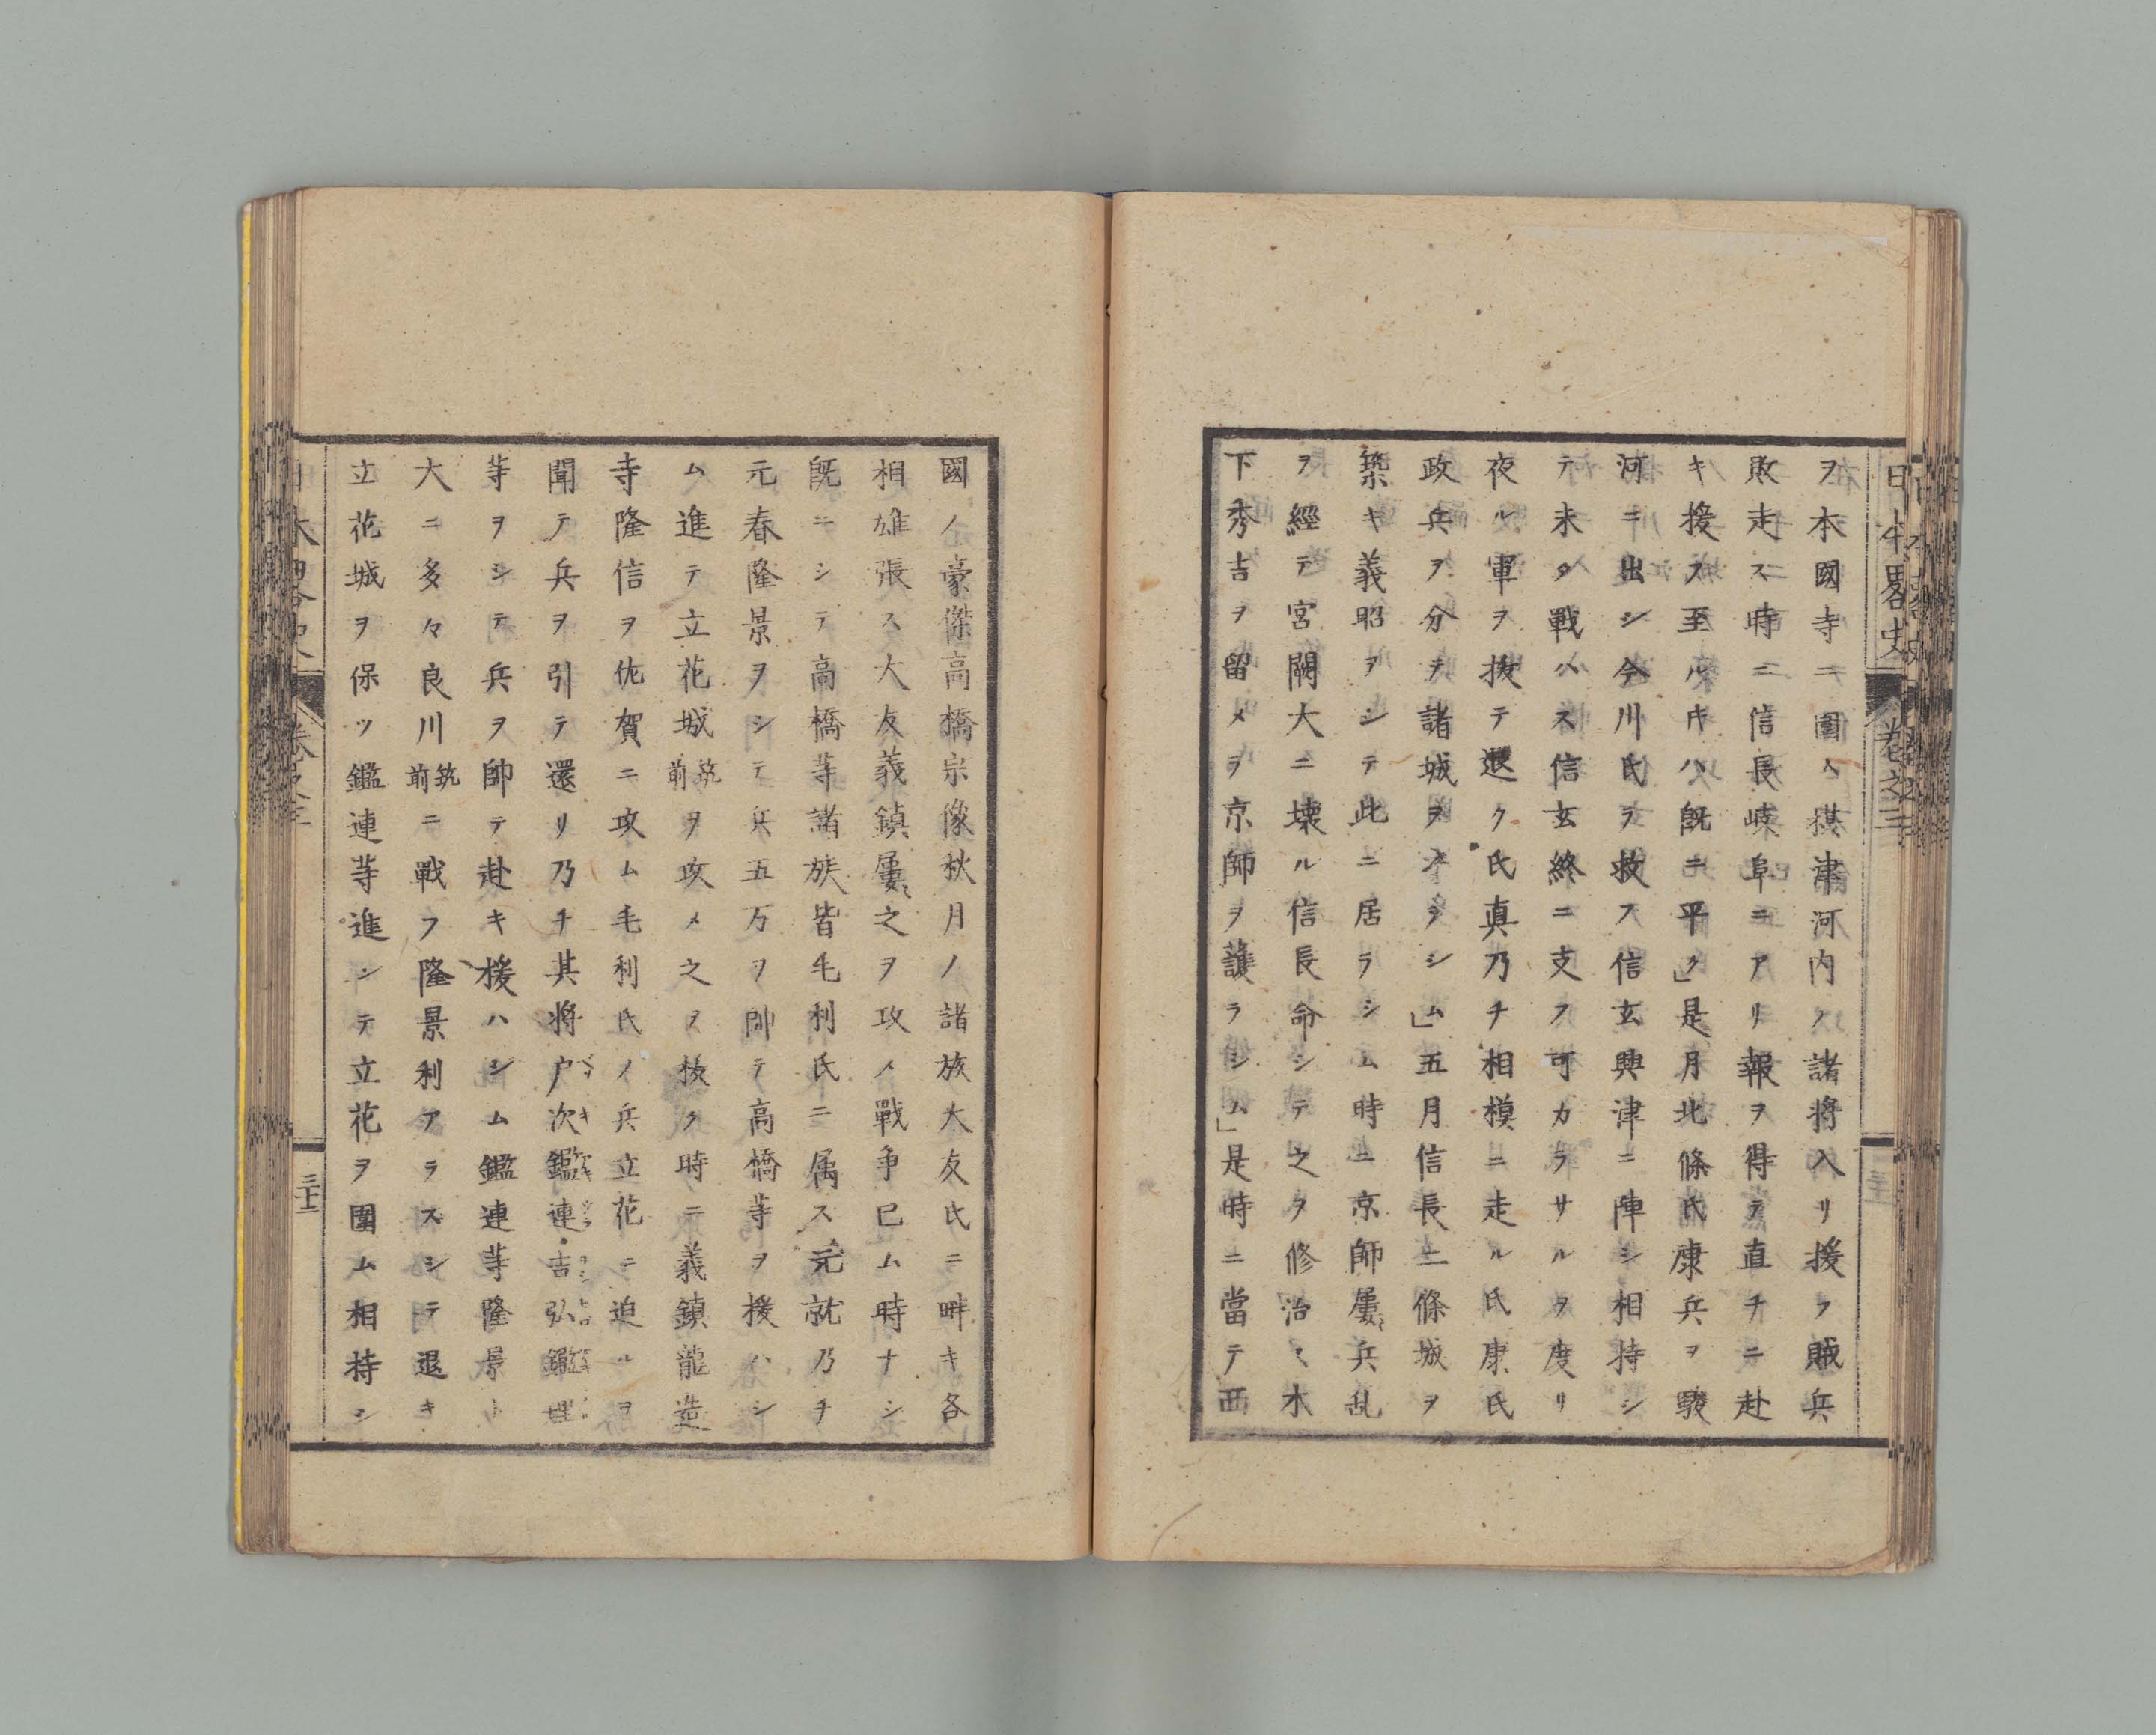 日本畧史
卷之三
ヲ本國寺ニ圍ム摂津河内ノ諸將入リ援フ賊兵
敗走ス時ニ信長岐阜ニアリ報ヲ得テ直チニ赴
キ援ス至ル片ハ既ニ平ク」是月北條氏康兵ヲ駿
河ニ出シ今川氏ヲ救フ信玄興津ニ陣シ相持シ
テ未タ戰ハス信玄終ニ支フ可カラサルヲ度リ
夜ル軍ヲ抜テ退ク氏真乃チ相模ニ走ル氏康氏
政兵ヲ分テ諸城ヲ守ラシム」五月信長二條城ヲ
築キ義昭ヲシテ此ニ居ラシム時ニ京師屢〻兵乱
ヲ經テ宮闕大ニ壊ル信長命シテ之ヲ修治ス木
下秀吉ヲ留メヲ京師ヲ護ラシム」是時ニ當テ西
國ノ豪傑高橋宗像秋月ノ諸族大友氏ニ畔キ各
相雄張ス大友義鎮屢〻之ヲ攻メ戰争已ム時ナシ
既ニシテ高橋等諸族皆毛利氏ニ属ス元就乃チ
元春隆景ヲシテ兵五万ヲ帥テ高橋等ヲ援ハシ
ム進テ立花城筑前ヲ攻メ之ヲ抜ク時ニ義鎮龍造
寺隆信ヲ佐賀ニ攻ム毛利氏ノ兵立花ニ迫ルヲ
聞テ兵ヲ引テ還リ乃チ其將戸次鑑連吉弘鑑理
等ヲシテ兵ヲ帥テ赴キ援ハシム鑑連等隆景ト
大ニ多々良川筑前ニ戰フ隆景利アラスシテ退キ
立花城ヲ保ツ鑑連等進シテ立花ヲ圍ム相持シ
三十二